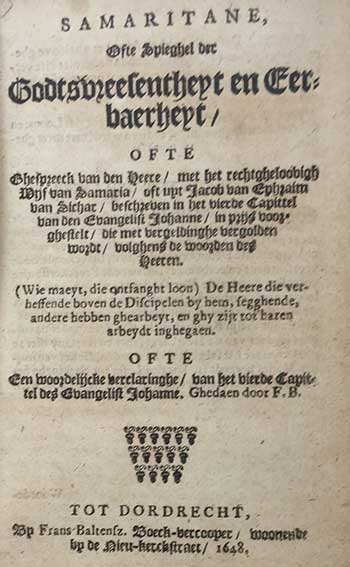 SAMARITANE,
Ofte Spieghel der
Godtsvreesentheyt en Eer-
baerheyt/
OFTE
Ghespreeck van den Heere/ met het rechtgheloovigh
Wijf van Samaria/ oft uyt Jacob van Ephraim
van Sichar/ beschreven in het vierde Capittel
van den Evangelist Johanne/ in prijs voor-
ghestelt/ die met vergeldinghe vergolden
wordt/ volghens de woorden des
Heeren.
(Wie maeyt, die ontfanght loon) De Heere die ver-
heffende boven de Discipelen by hem, segghende,
andere hebben ghearbeyt, en ghy zijt tot haren
arbeydt inghegaen.
OFTE
Een woordelijcke verclaringhe/ van het vierde Capit-
tel des Evangelist Johanne. Ghedaen door F. B.
TOT DORDRECHT,
By Frans Baltensz. Boeck-vercooper/ woonende
by de Nieu-kerckstraet/ 1648.